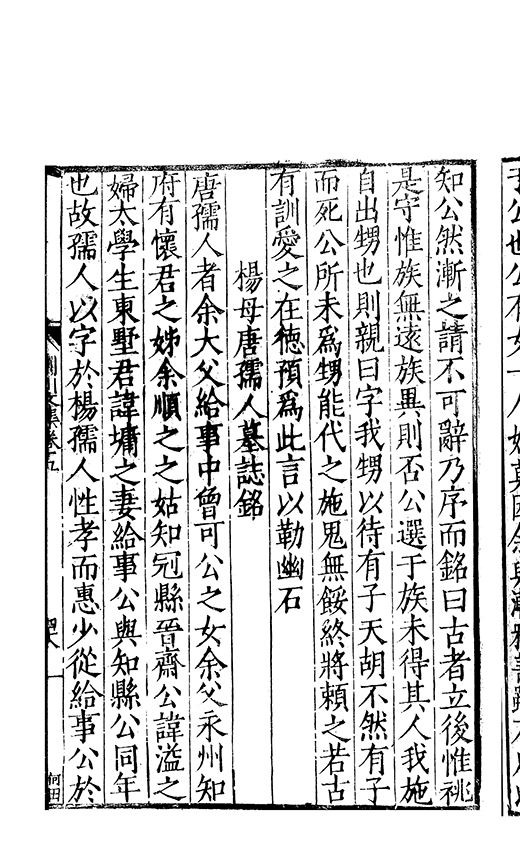 知公然漸之請不可辭乃序而銘曰古者立後惟祧
是守惟族無遠族異則否公選于族未得其人我施
自出甥也則親曰字我甥以待有子天胡不然有子
而死公所未爲甥能代之施鬼無餒終將賴之若古
有訓愛之在德預爲此言以勒幽石
楊母唐孺人墓誌銘
唐孺人者余大父給事中曾可公之女余父永州知
府有懷君之姊余順之之姑知冠縣晉齋公諱溢之
婦太學生東墅君諱墉之妻給事公與知縣公同年
也故孺人以字於楊孺人性孝而惠少從給事公於
荊川文集卷十五
何田